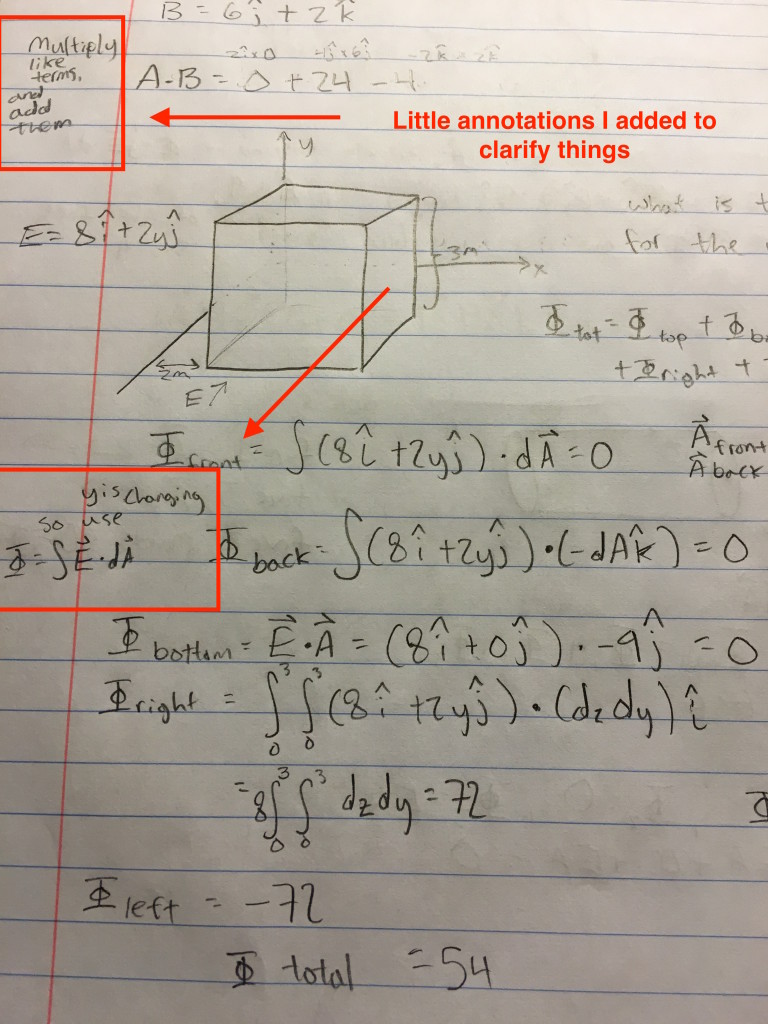 B = 6ĵ + 2k̂
Multiply
like
terms,
and
add
them
A·B = 0 + 24 - 4
Little annotations I added to
clarify things
y
what is t
E = 8î + 2yĵ
3m
x
for the
Φtot = Φtop + Φba
+ Φright +
2m
E↗
Φfront = ∫(8î + 2yĵ)·dA⃗ = 0
A⃗front
A⃗back
y is changing
so use
Φ = ∫E⃗·dA⃗
Φback = ∫(8î + 2yĵ)·(-dAk̂) = 0
Φbottom = E⃗·A⃗ = (8î + 0ĵ)·-9ĵ = 0
Φright = ∫₀³∫₀³(8î + 2yĵ)·(dzdy)î
= 8∫₀³∫₀³ dzdy = 72
Φ
Φleft = -72
Φ total = 54